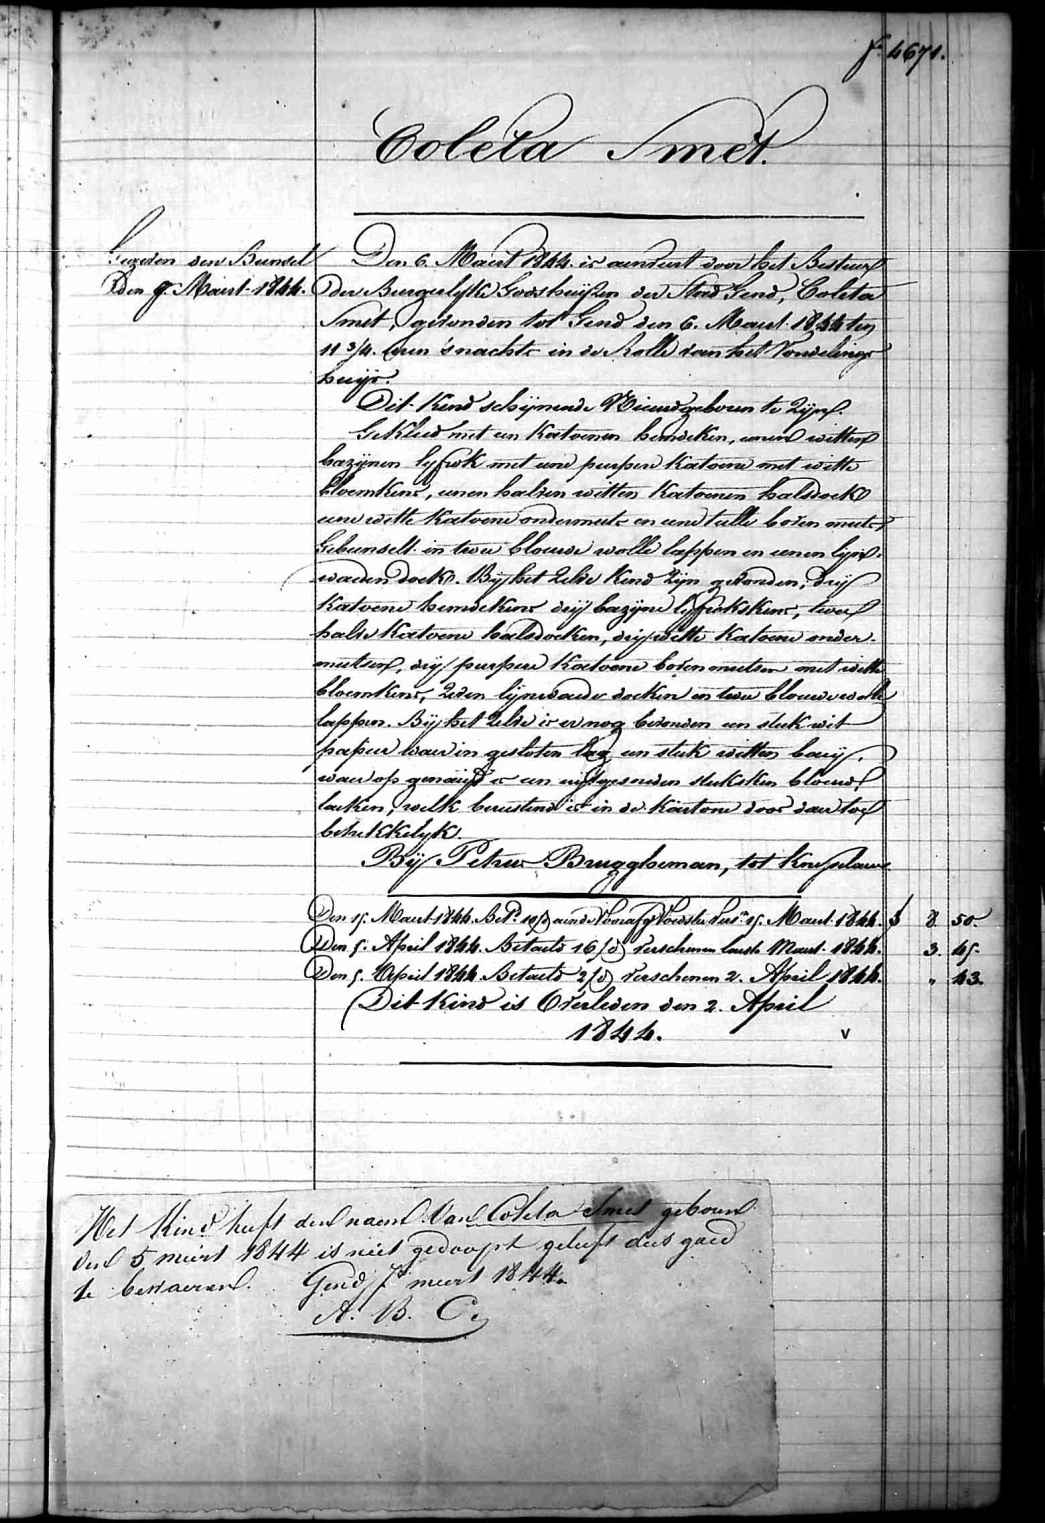 f.º 4671.
Coleta Smet.
Gezeden den Bunsel
Den 9. Maert 1844.
Den 6. Maert 1844. is aenveert door het Bestuer
der Burgerlyke Godshuijzen der Stad Gend, Coleta
Smet, gevonden tot Gend den 6. Maert 1844 ten
11 3/4. uren 's nachts in de Rolle van het Vondelings
huijs.
Dit Kind schijnende Nieuwgeboren te Zijn.
Gekleed met een Katoenen hemdeken, eenen witten
bazijnen lyfrok met eene purpere Katoene met witte
bloemkens, eenen halven witten Katoenen halsdoek
eene witte Katoene ondermuts en eene tulle boven muts,
Gebunselt in twee blouwe wolle lappen en eenen lijn-
waeden doek. Bij het Zelve Kind Zijn gevonden, drij
Katoene hemdekens drij bazijne lyfrokskens, twee
halve Katoene halsdoeken, drij witte Katoene onder-
mutsen, drij purpere Katoene boven mutsen met witte
bloemkens, Zeven lijnwaede doeken en twee blouwe wolle
lappen. Bij het Zelve is er nog bevonden een stuk wit
papier waer in gesloten lag een stuk witten baeij,
waer op genaeijd is een uijtgesneden stuksken blouw
laeken, welk berustend is in de Kartone doos daer toe
betrekkelyk.
Bij Petrus Bruggheman, tot Knesselaere
Den 15. Maert 1844. Bet.d 10/d aen de Vooraf.e Voedster Vers.n 15. Maert 1844. f 8 50.
Den 5. April 1844. Betaeld 16/d Verschenen laeste Maert 1844. 3. 45.
Den 5. April 1844. Betaeld 2/d Verschenen 2. April 1844. " 43.
Dit Kind is Overleden den 2. April
1844.
v
Het Kind heeft den naem Van Coleta Smet geboren
den 5 meert 1844 is niet gedoopt gelieft dees goed
te bewaeren. Gend meert 1844.
A. B. C.